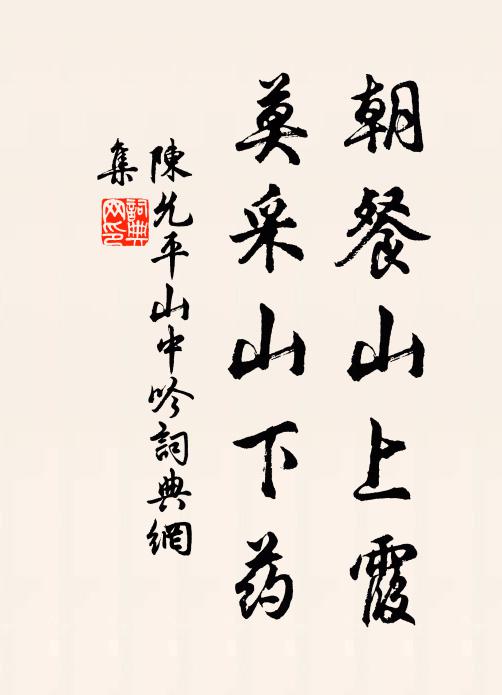 朝餐山上霞
莫采山下药
陳允平山中吟詞典網
集
詞典網印